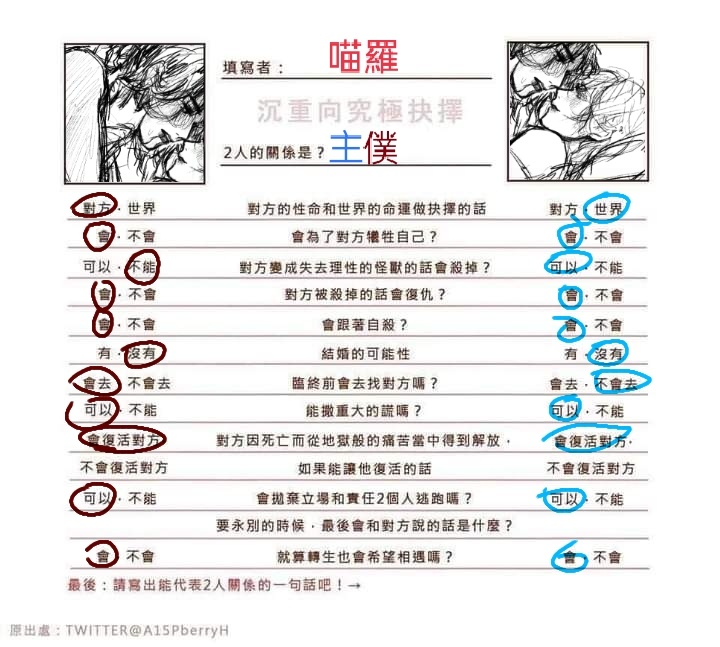 填寫者： 喵羅
沉重向究極抉擇
2人的關係是？ 主僕
對方・世界 對方的性命和世界的命運做抉擇的話 對方・世界
會・不會 會為了對方犧牲自己？ 會・不會
可以・不能 對方變成失去理性的怪獸的話會殺掉？ 可以・不能
會・不會 對方被殺掉的話會復仇？ 會・不會
會・不會 會跟著自殺？ 會・不會
有・沒有 結婚的可能性 有・沒有
會去・不會去 臨終前會去找對方嗎？ 會去・不會去
可以・不能 能撒重大的謊嗎？ 可以・不能
會復活對方 對方因死亡而從地獄般的痛苦當中得到解放， 會復活對方・
不會復活對方 如果能讓他復活的話 不會復活對方
可以・不能 會拋棄立場和責任2個人逃跑嗎？ 可以・不能
要永別的時候，最後會和對方說的話是什麼？
會・不會 就算轉生也會希望相遇嗎？ 會・不會
最後：請寫出能代表2人關係的一句話吧！→
原出處：TWITTER@A15PberryH